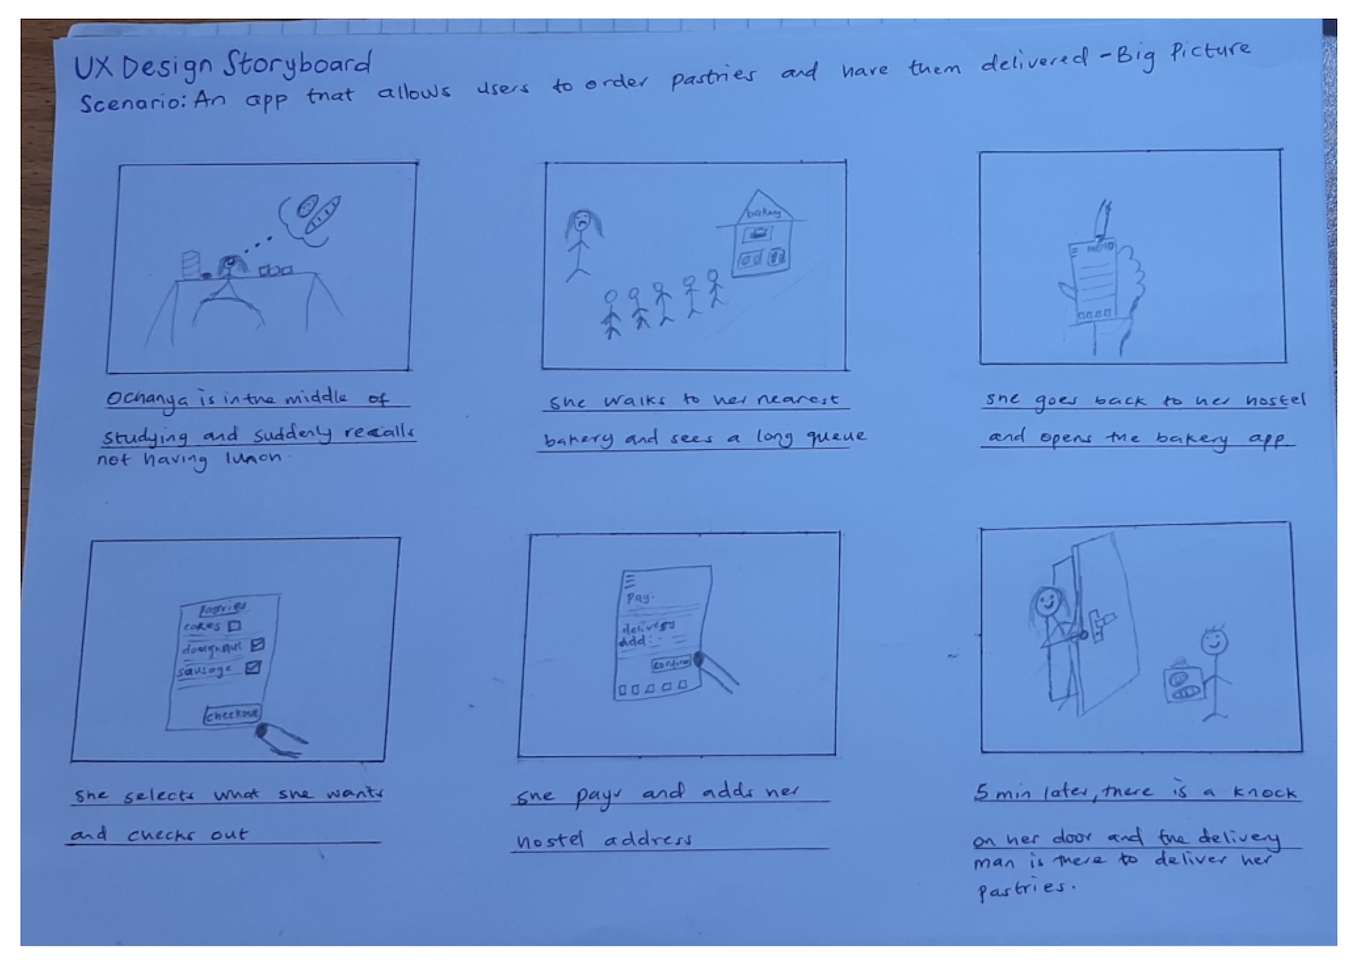 UX Design Storyboard
Scenario: An app that allows users to order pastries and have them delivered - Big Picture
bakery
MENU
Ochanya is in the middle of
studying and suddenly recalls
not having lunch.
she walks to her nearest
bakery and sees a long queue
she goes back to her hostel
and opens the bakery app
Pastries
cakes
doughnut
sausage
checkout
Pay.
delivery
add:
confirm
she selects what she wants
and checks out
she pays and adds her
hostel address
5 min later, there is a knock
on her door and the delivery
man is there to deliver her
pastries.